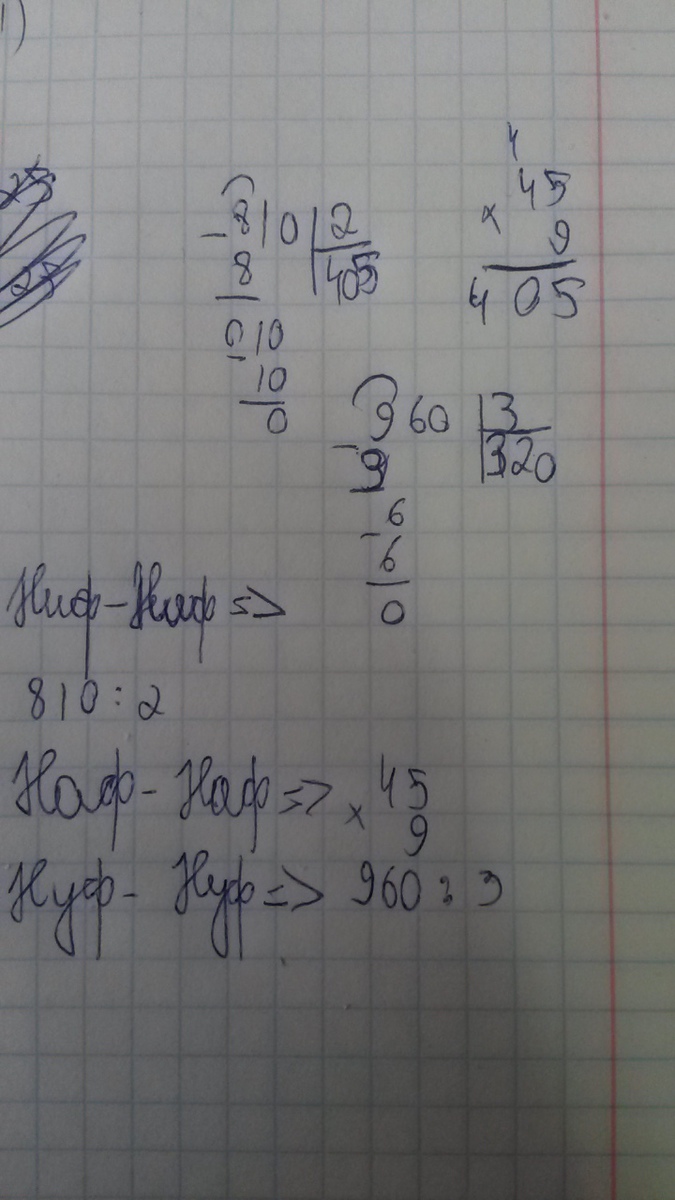 1)
25
25
4
45
× 9
405
- 810 | 2
8 | 405
010
- 10
0
- 960 | 3
9 | 320
- 6
6
0
Ниф-Ниф =>
810 : 2
Наф- Наф => × 45
9
Нуф- Нуф => 960 : 3